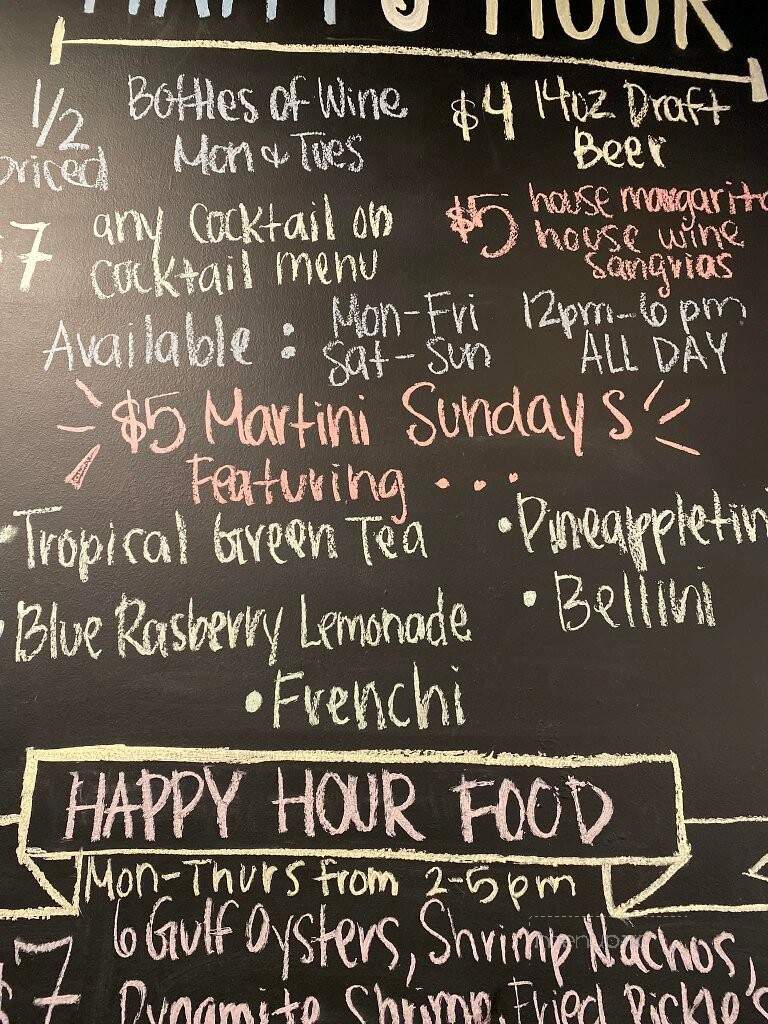 HAPPY HOUR
1/2 priced Bottles of Wine Mon & Tues
$4 14oz Draft Beer
$7 any cocktail on cocktail menu
$5 house margarita house wine sangrias
Available : Mon-Fri 12pm-6pm
Sat-Sun ALL DAY
$5 Martini Sundays
Featuring ...
•Tropical Green Tea
•Pineappletini
•Blue Rasberry Lemonade
•Bellini
•Frenchi
HAPPY HOUR FOOD
Mon-Thurs from 2-5pm
$7 6 Gulf Oysters, Shrimp Nachos,
Dynamite Shrimp, Fried Pickle's